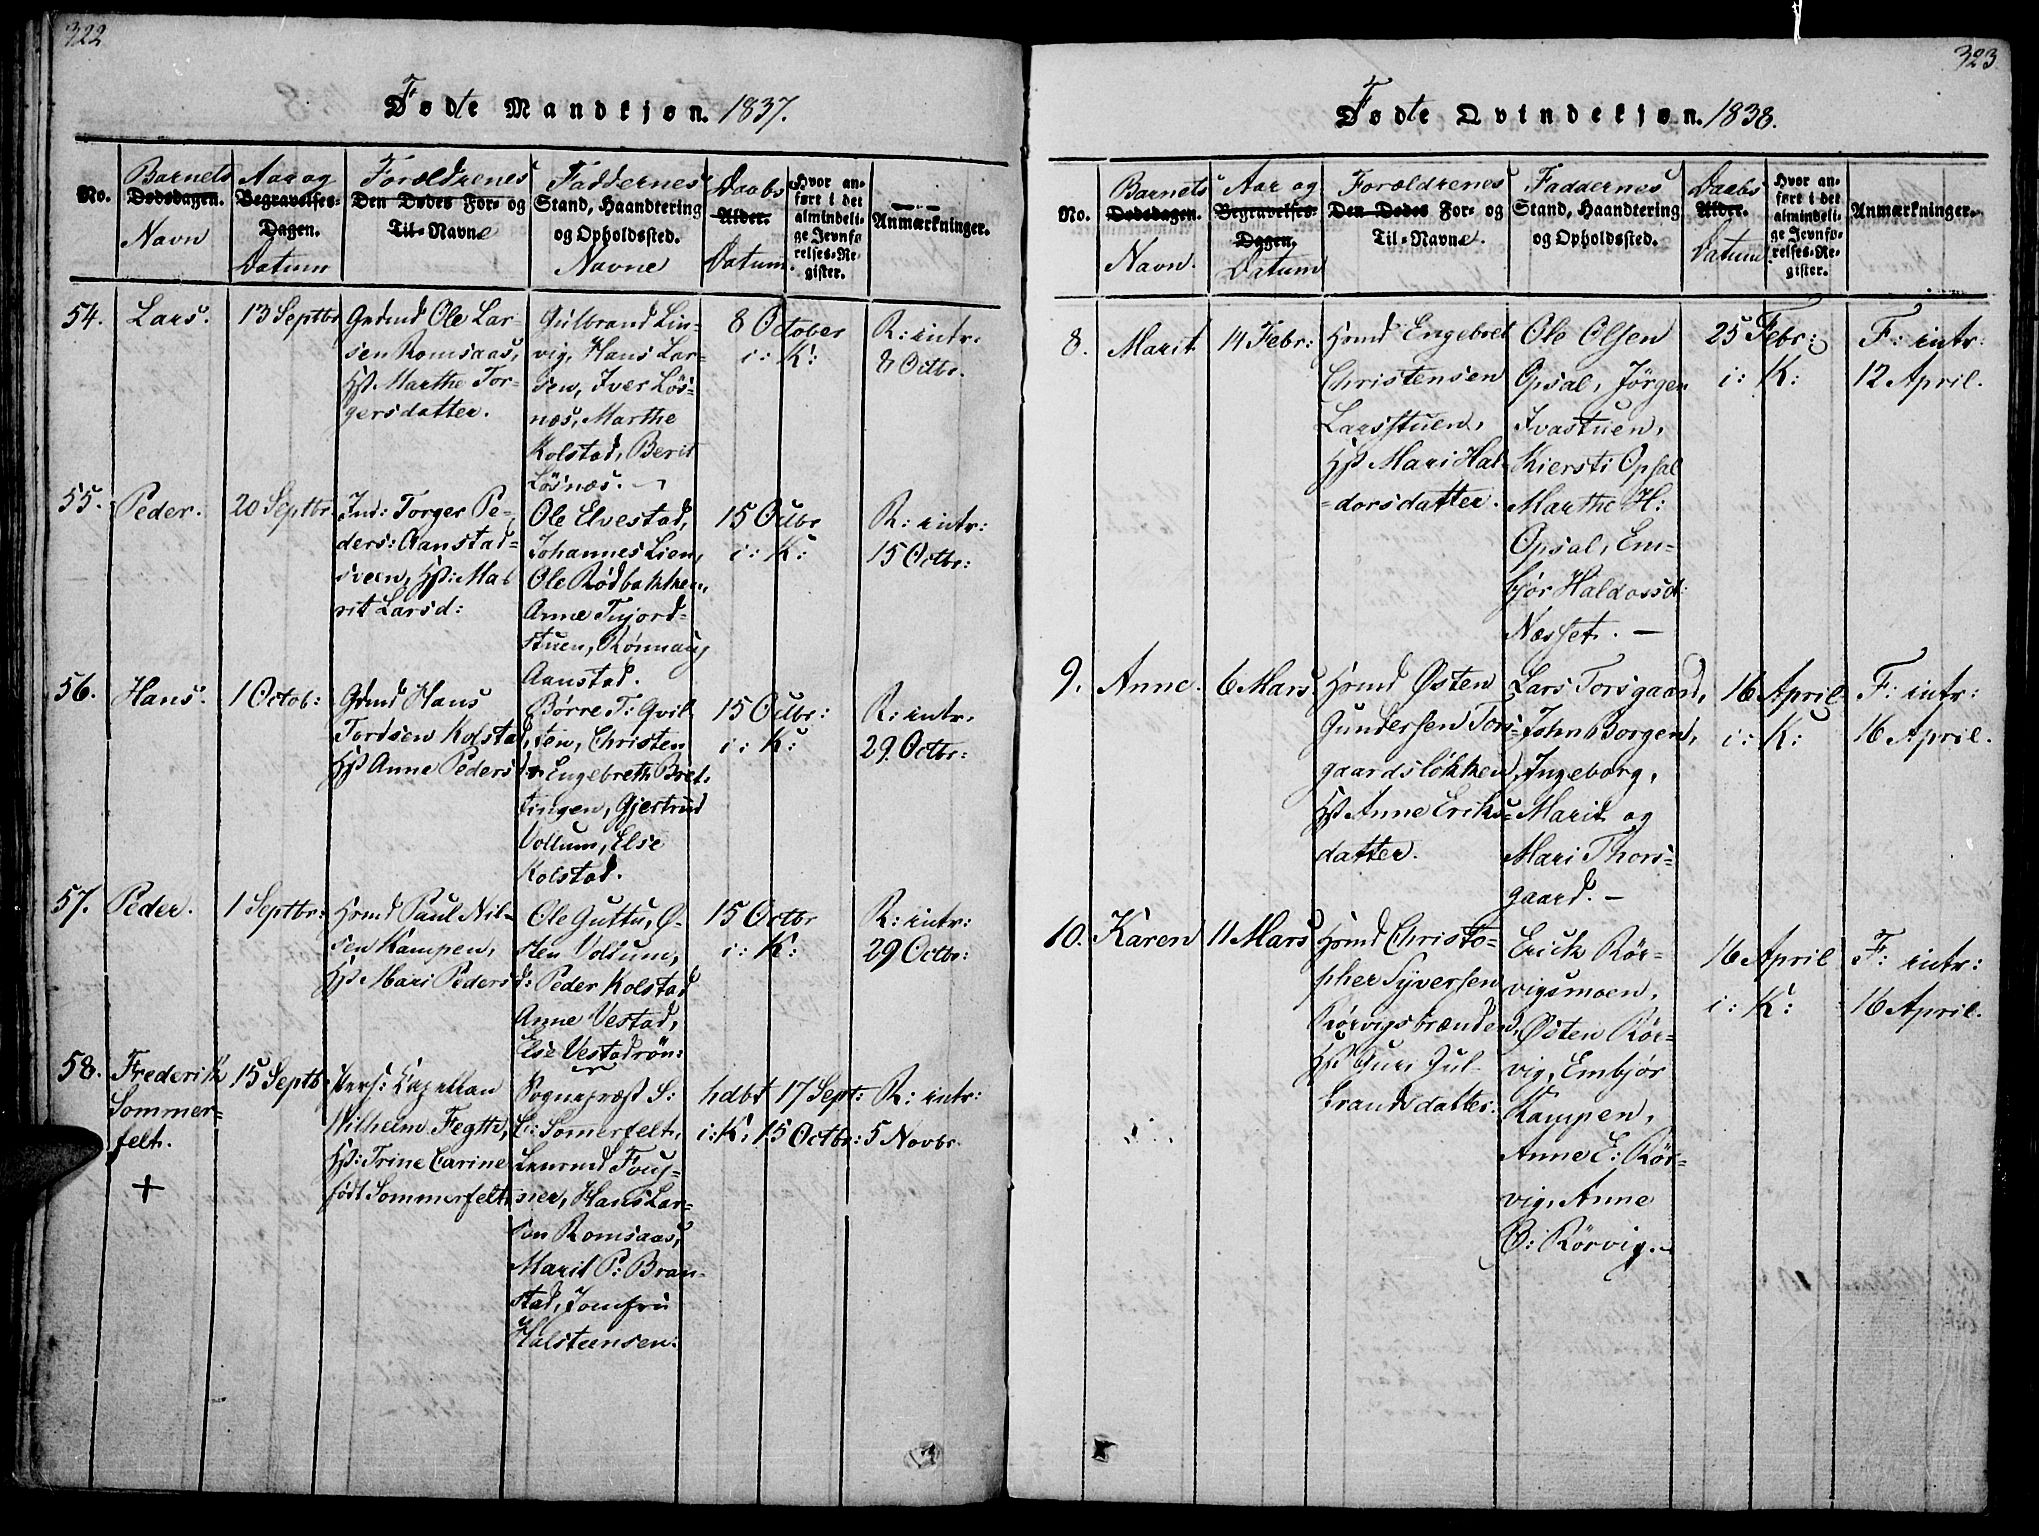 322
Fødte Mandkjøn. 1837.
No.
Barnets
Dødsdagen.
Navn
Aar og
Begravelses-
Dagen.
Datum
Forældrenes
Den Dødes For- og
Til-Navne
Faddernes
Stand, Haandtering
og Opholdssted.
Navne
Daabs
Alder.
Datum.
Hvor an-
ført i det
almindeli-
ge Jevnfø-
relses-Re-
gister.
Anmærkninger.
54.
Lars.
13 Septbr
Grdmd Ole Lar-
sen Romsaas,
Hst. Marthe Tor-
gersdatter.
Gulbrand Lin-
vig, Hans Lar-
sen, Iver Løs-
næs, Marthe
Kolstad, Berit
Løsnæs.
8 October
i: K:
R: intr.
8 Octbr.
55.
Peder.
20 Septbr
Ind: Torger Pe-
ders: Aanstad-
sveen, Hst: Ma-
rit Larsd:
Ole Elvestad,
Johannes Lien,
Ole Rødbakken,
Anne
stuen, Rønnaug
Aanstad.
15 Octbr
i: K:
R: intr:
15 Octbr:
56.
Hans.
1 Octob:
Grmd Hans
Tordsen Kolstad,
Hst Anne Peders
Børre T: Qvil
sten, Christen
Engebreth Bret-
tingen, Gjertrud
Vollum, Else
Kolstad.
15 Octbr:
i: K:
R: intr.
29. Octbr:
57.
Peder.
1 Septbr:
Hmd Paul Nil-
sen Kampen,
Hst Mari Peders
Ole Guttu, Ø-
sten Voldum,
d: Peder Kolstad
Anne Vestad,
Else Vestadrøn:
15 Octbr
i: K:
R: intr:
29 Octbr:
58.
Frederik
Sommer-
felt.
+
15 Septb:
Pers: Capellan
Wilhelm
Hst: Trine Carine
født Sommerfelt.
Sognepræst S:
C: Somerfelt,
Foug-
ner, Hans Lar-
sen Romsaas,
Marit P: Bran-
stad, Jomfru
Halsteensen.
hdbt 17 Sept:
i: K. 15 Octbr:
R: intr:
5 Novbr.
323
Fødte Qvindekjøn. 1838.
No.
Barnets
Dødsdagen.
Navn.
Aar og
Begravelses-
Dagen.
Datum
Forældrenes
Den Dødes For- og
Til-Navne.
Faddernes
Stand, Haandtering
og Opholdssted.
Daabs
Alder.
Datum.
Hvor an-
ført i det
almindeli-
ge Jevnfø-
relses-Re-
gister.
Anmærkninger.
8.
Marit
14 Febr:
Hmd Engebret
Christensen
Larsstuen,
Hst Mari Hal-
-dorsdatter.
Ole Olsen
Opsal, Jørgen
Ivastuen,
Kiersti Opsal
Marthe H:
Opsal, Em-
bjør Haldorsd:
Næsset. —
25 Febr:
i: K:
F: intr:
12 April.
9.
Anne.
6 Mars
Hmd Østen
Gundersen Tors-
gaardsløkken,
Hst Anne Eriks-
datter.
Lars Torsgaard,
John Borgen,
Ingeborg,
Marit og
Mari Thors-
gaard. —
16 April
i: K:
F: intr:
16 April.
10.
Karen
11 Mars
Hmd Christo-
pher Syversen
Rørvigsbrænden,
Hst Guri Gul-
brandsdatter.
Erick Rør-
vigsmoen,
Østen Rør-
vig, Embjør
Kampen,
Anne E: Rør-
vig, Anne
O: Rørvig.
16 April
i: K:
F: intr:
16 April.